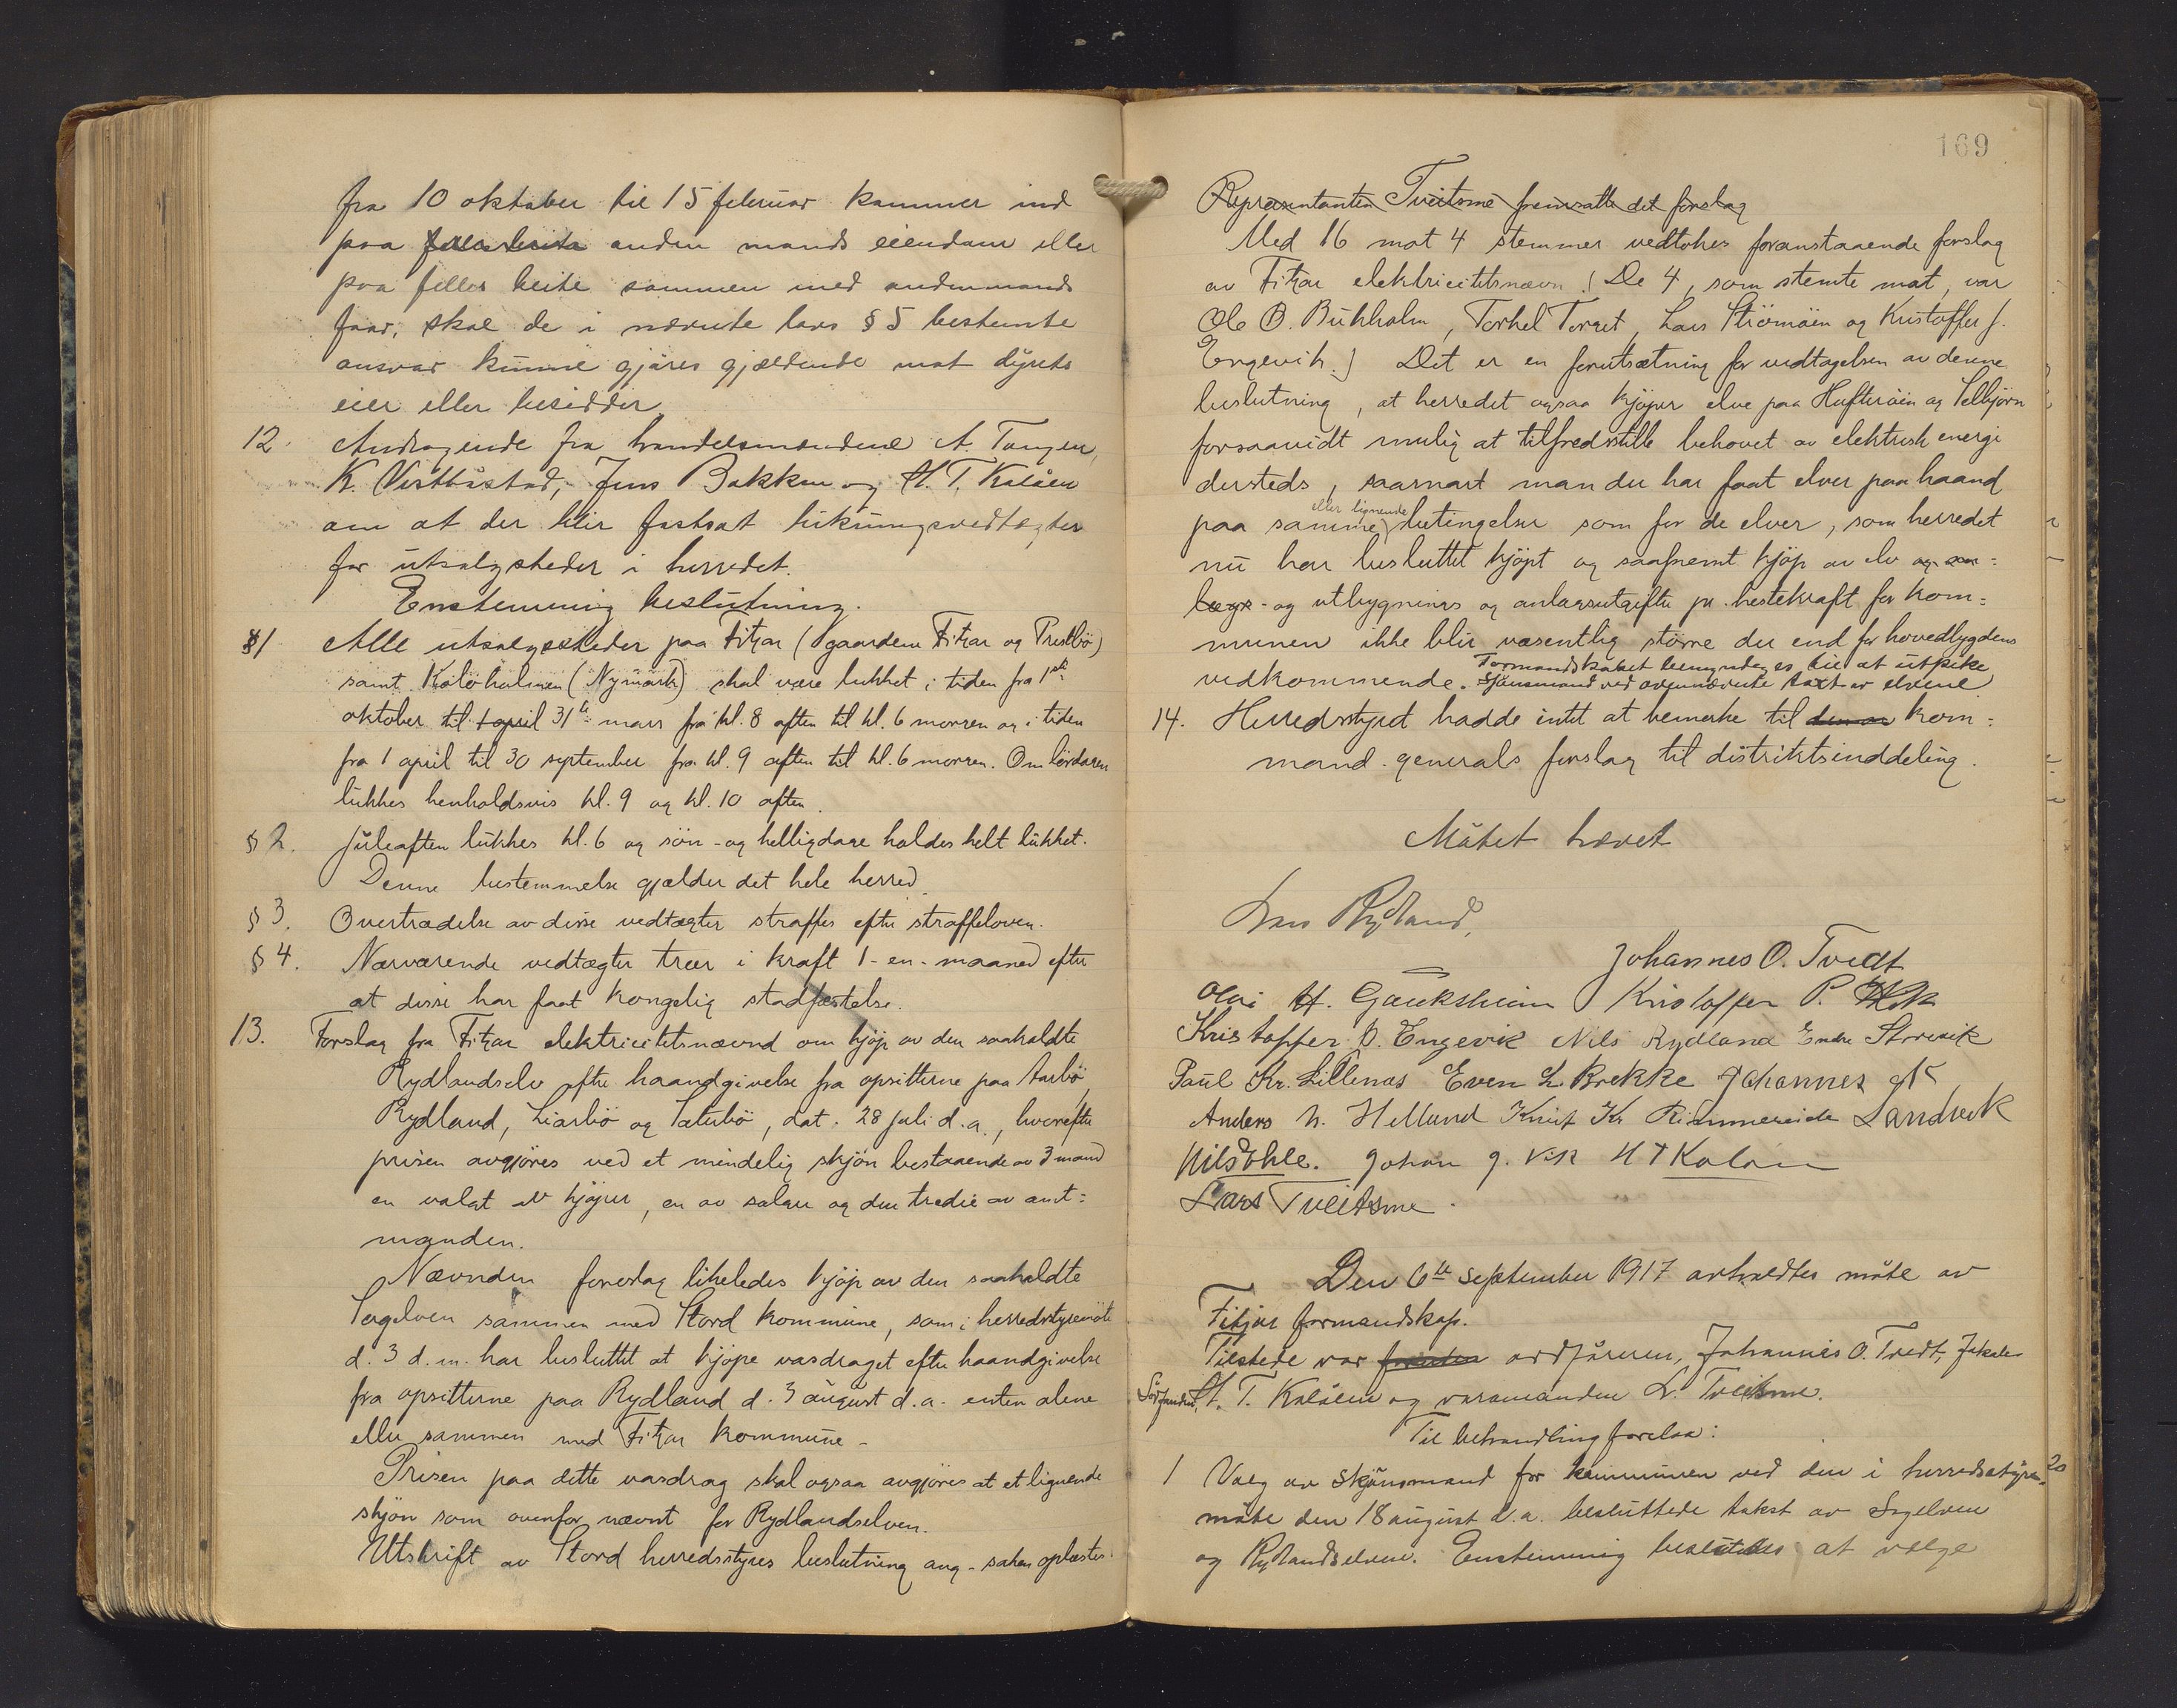 fra 10 oktober til 15 februar kommer ind
paa anden mands eiendom eller
paa fælles beite sammen med andenmands
faar, skal de i nævnte lovs § 5 bestemte
ansvar kunne gjøres gjældende mot dyrets
eier eller besidder
12. Andragende fra handelsmændene A. Tangen,
K. Vestbøstad, Jens Bakken og H. T. Kaløen
om at der blir fastsat lukningsvedtægter
for utsalgsteder i herredet.
Enstemmig beslutning.
§1 Alle utsalgssteder paa Fitjar (gaardene Fitjar og Prestbø)
samt Kaløholmen (Nymark) skal være lukket i tiden fra 1ste
oktober til 1 april 31te mars fra kl. 8 aften til kl. 6 morgen og i tiden
fra 1 april til 30 september fra kl. 9 aften til kl. 6 morgen. Om lørdagen
lukkes henholdsvis kl. 9 og kl. 10 aften.
§ 2. Juleaften lukkes kl. 6 og søn- og helligdage holdes helt lukket.
Denne bestemmelse gjælder det hele herred
§ 3. Overtrædelse av disse vedtægter straffes efter straffeloven.
§ 4. Nærværende vedtægter træer i kraft 1-en-maaned efter
at disse har faat kongelig stadfæstelse.
13. Forslag fra Fitjar elektricitetsnævnd om kjøp av den saakaldte
Rydlandselv efter haandgivelse fra opsitterne paa Aarbø,
Rydland, Liarbø og Sæterbø, dat. 28 juli d.a., hvorefter
prisen avgjøres ved et mindelig skjøn bestaaende av 3 mand
en valgt av kjøper, en av sælger og den tredie av amt=
manden.
Nævnden foreslog likeledes kjøp av den saakaldte
Sagelven sammen med Stord kommune, som i herredsstyremøte
d. 3 d.m. har besluttet at kjøpe vasdraget efter haandgivelse
fra opsitterne paa Rydland d. 3 august d.a. enten alene
eller sammen med Fitjar kommune.
Prisen paa dette vasdrag skal ogsaa avgjøres at et lignende
skjøn som ovenfor nævnt for Rydlandselven.
Utskrift av Stord herredsstyres beslutning ang. saken oplæstes.
169
Repræsentanten Tveitsme fremsatte det forslag
Med 16 mot 4 stemmer vedtokes foranstaaende forslag
av Fitjar elektricitetsnævn. (De 4, som stemte mot, var
Ole O. Bukholm, Torkel Torget, Lars Strømøen og Kristoffer J.
Engevik.) Det er en forutsætning for vedtagelsen av denne
beslutning, at herredet ogsaa kjøper elve paa Huftarøen og Selbjørn
forsaavidt mulig at tilfredsstille behovet av elektrisk energi
dersteds, saasnart man der har faat elver paa haand
paa samme eller lignende betingelser som for de elver, som herredet
nu har besluttet kjøpt og saafremt kjøp av elv og an=
lægs- og utbygnings og anlægsutgifter pr. hestekraft for kom=
munen ikke blir væsentlig større der end for hovedbygdens
vedkommende. Formandskabet bemyndiges til at utpeke
skjønsmand ved ovennævnte takst av elvene
14. Herredsstyret hadde intet at bemerke til kom=
mand. generals forslag til distriktsinddeling.
Møtet hævet
Lars Rydland,
Johannes O. Tvedt
Olai H. Gauksheim Kristoffer P. Vik
Kristoffer J. Engevik Nils Rydland Endre Storevik
Paul Kr. Lillenas Even L. Brekke Johannes
Anders N. Helland Knut Kr Rimmereide Landvik
Nils Øhle. Johan J. Vik H T Kaløen
Lars Tveitsme.
Den 6te september 1917 avholdtes møte av
Fitjar formandskap.
Tilstede var ordføreren, Johannes O. Tvedt,
H. T. Kaløen og varamanden L. Tveitsme.
Til behandling forelaa:
1 Valg av skjønsmand for kommunen ved den i herredsstyre-
møte den 18 august d.a. besluttede takst av Sagelven
og Rydlandselven. Enstemmig besluttedes at vælge
20